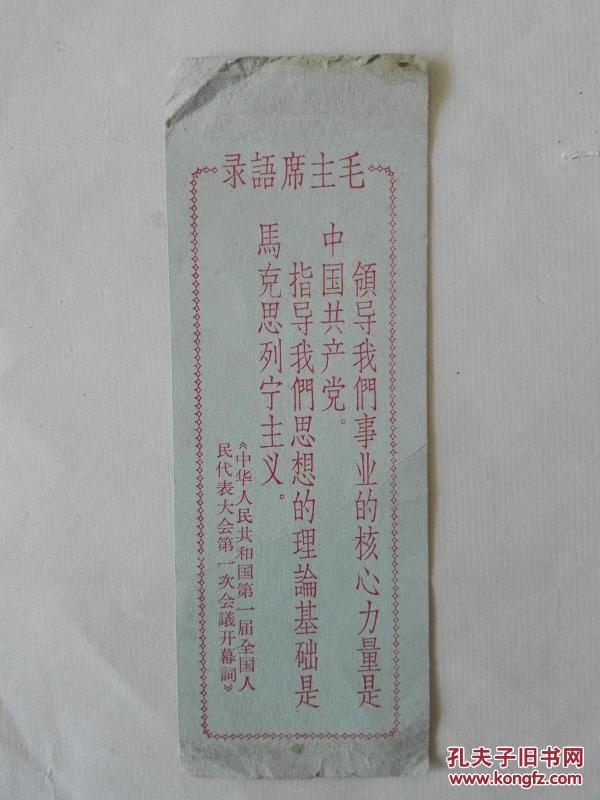 毛主席語录
領导我們事业的核心力量是
中国共产党。
指导我們思想的理論基础是
馬克思列宁主义。
《中华人民共和国第一届全国人
民代表大会第一次会議开幕詞》
孔夫子旧书网
www.kongfz.com